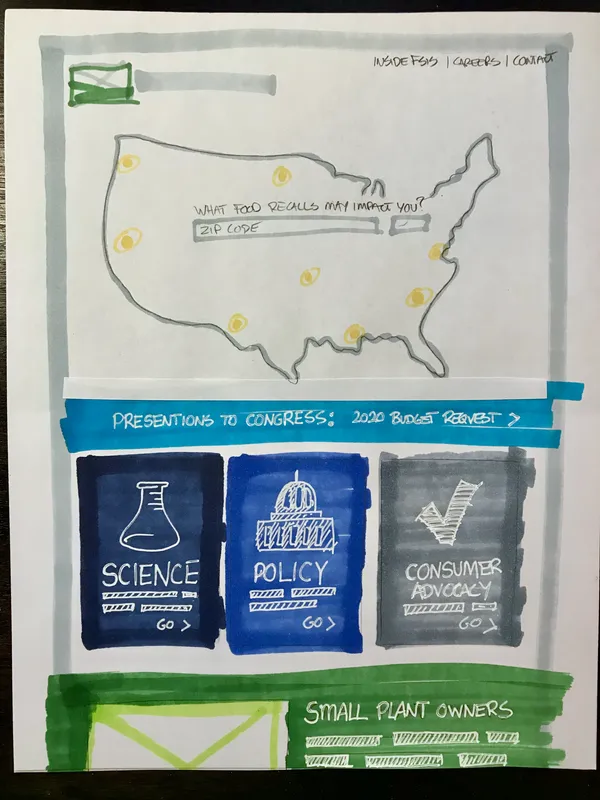 INSIDE FSIS | CAREERS | CONTACT
WHAT FOOD RECALLS MAY IMPACT YOU?
ZIP CODE
PRESENTIONS TO CONGRESS: 2020 BUDGET REQUEST >
SCIENCE
GO >
POLICY
GO >
CONSUMER
ADVOCACY
GO >
SMALL PLANT OWNERS